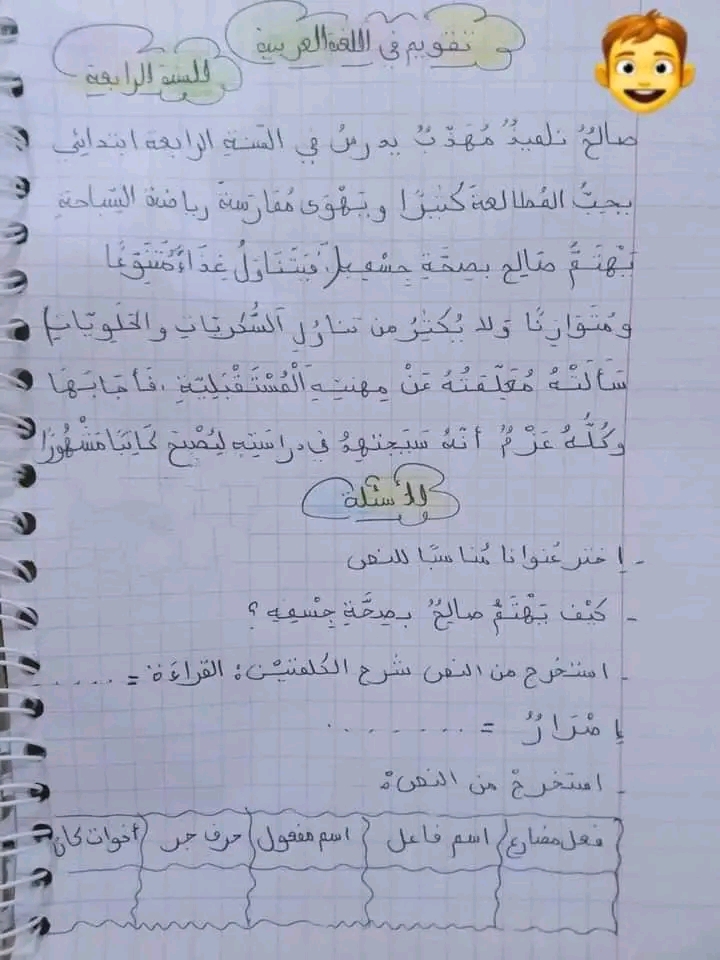 تقويم في اللغة العربية
للسنة الرابعة
صالحٌ تلميذٌ مُهَذّبٌ يدرسُ في السّنةِ الرابعة ابتدائي
يحبُّ المُطالعةَ كثيرًا ويَهْوَى مُمَارَسةَ رياضة السّباحةِ
يَهْتَمُّ صَالِح بِصِحَّةِ جِسْمِهِ (، فَيَتَنَاوَلُ غِذَاءً مُتَنَوِّعًا
ومُتَوَازِنًا وَلا يُكثِرُ من تناولِ السُّكرياتِ والحَلَوِيّاتِ)
سَأَلَتْهُ مُعَلِّمَتُهُ عَنْ مِهنتِهِ الْمُسْتَقْبَلِيّةِ ، فَأَجَابَهَا
وكُلُّهُ عَزْمٌ أنّهُ سَيَجتهِدُ في دراسَتِهِ لِيُصْبِحَ كَاتِبًا مَشْهُورًا
الأسئلة
- إختر عُنوانا مُناسبًا للنص
- كَيْفَ يَهْتَمُّ صالِحٌ بِصِحَّةِ جِسْمِهِ ؟
- استخرج من النص شرح الكلمتيْن : القراءَة = .....
إِصْرَارٌ = .......
- استخرجْ من النص :
فعل مضارع | اسم فاعل | اسم مفعول | حرف جر | أخوات كان